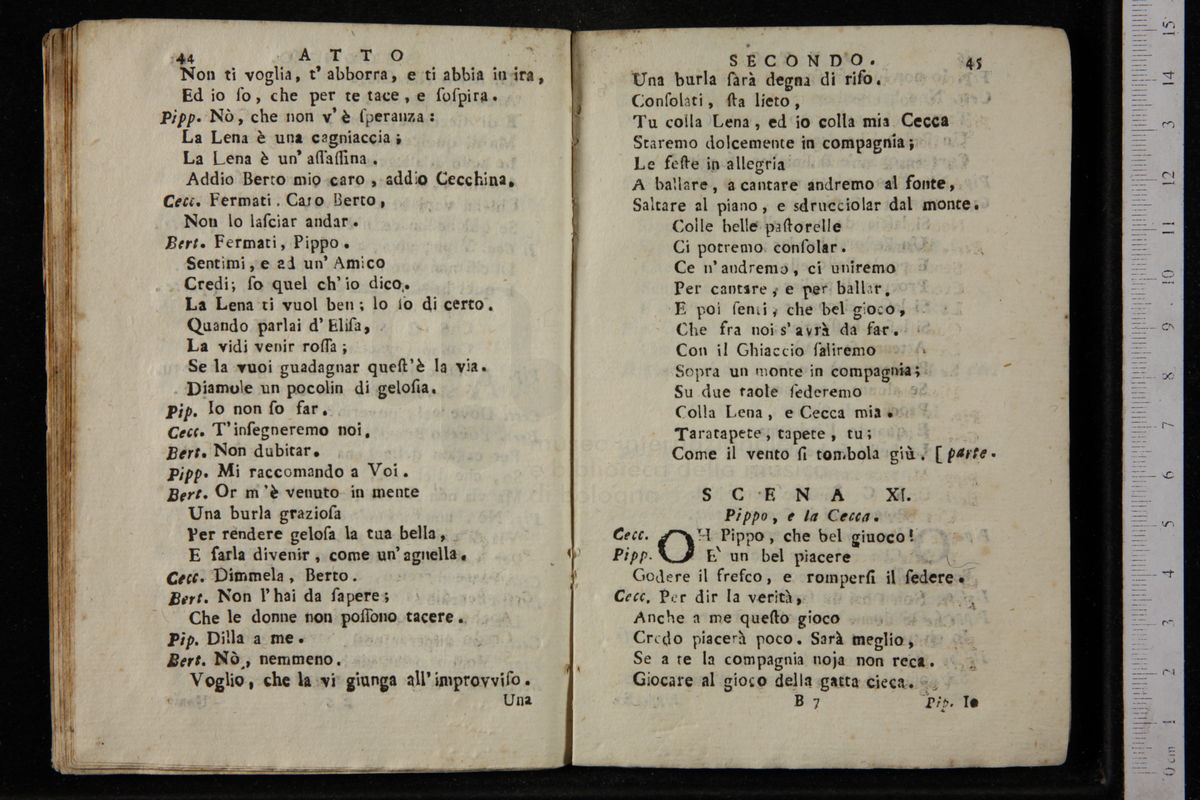 44 ATTO
Non ti voglia, t' abborra, e ti abbia in ira,
Ed io ſo, che per te tace, e ſoſpira.
Pipp. Nò, che non v'è ſperanza:
La Lena è una cagniaccia;
La Lena è un' aſſaſſina.
Addio Berto mio caro, addio Cecchina.
Cecc. Fermati. Caro Berto,
Non lo laſciar andar.
Bert. Fermati, Pippo.
Sentimi, e ad un' Amico
Credi; ſo quel ch' io dico.
La Lena ti vuol ben; lo ſo di certo.
Quando parlai d' Eliſa,
La vidi venir roſſa;
Se la vuoi guadagnar queſt'è la via.
Diamole un pocolin di geloſia.
Pip. Io non ſo far.
Cecc. T'inſegneremo noi.
Bert. Non dubitar.
Pipp. Mi raccomando a Voi.
Bert. Or m'è venuto in mente
Una burla grazioſa
Per rendere geloſa la tua bella,
E farla divenir, come un'agnella.
Cecc. Dimmela, Berto.
Bert. Non l'hai da ſapere;
Che le donne non poſſono tacere.
Pip. Dilla a me.
Bert. Nò, nemmeno.
Voglio, che la vi giunga all'improvviſo.
Una
SECONDO. 45
Una burla ſarà degna di riſo.
Conſolati, ſta lieto,
Tu colla Lena, ed io colla mia Cecca
Staremo dolcemente in compagnia;
Le feſte in allegria
A ballare, a cantare andremo al fonte,
Saltare al piano, e sdrucciolar dal monte.
Colle belle paſtorelle
Ci potremo conſolar.
Ce n'andremo, ci uniremo
Per cantare, e per ballar.
E poi ſenti, che bel gioco,
Che fra noi s'avrà da far.
Con il Ghiaccio ſaliremo
Sopra un monte in compagnia;
Su due taole ſederemo
Colla Lena, e Cecca mia.
Taratapete, tapete, tu;
Come il vento ſi tombola giù. [parte.
SCENA XI.
Pippo, e la Cecca.
Cecc. OH Pippo, che bel giuoco!
Pipp. E' un bel piacere
Godere il freſco, e romperſi il ſedere.
Cecc. Per dir la verità,
Anche a me queſto gioco
Credo piacerà poco. Sarà meglio,
Se a te la compagnia noja non reca.
Giocare al gioco della gatta cieca.
B 7 Pip. Io